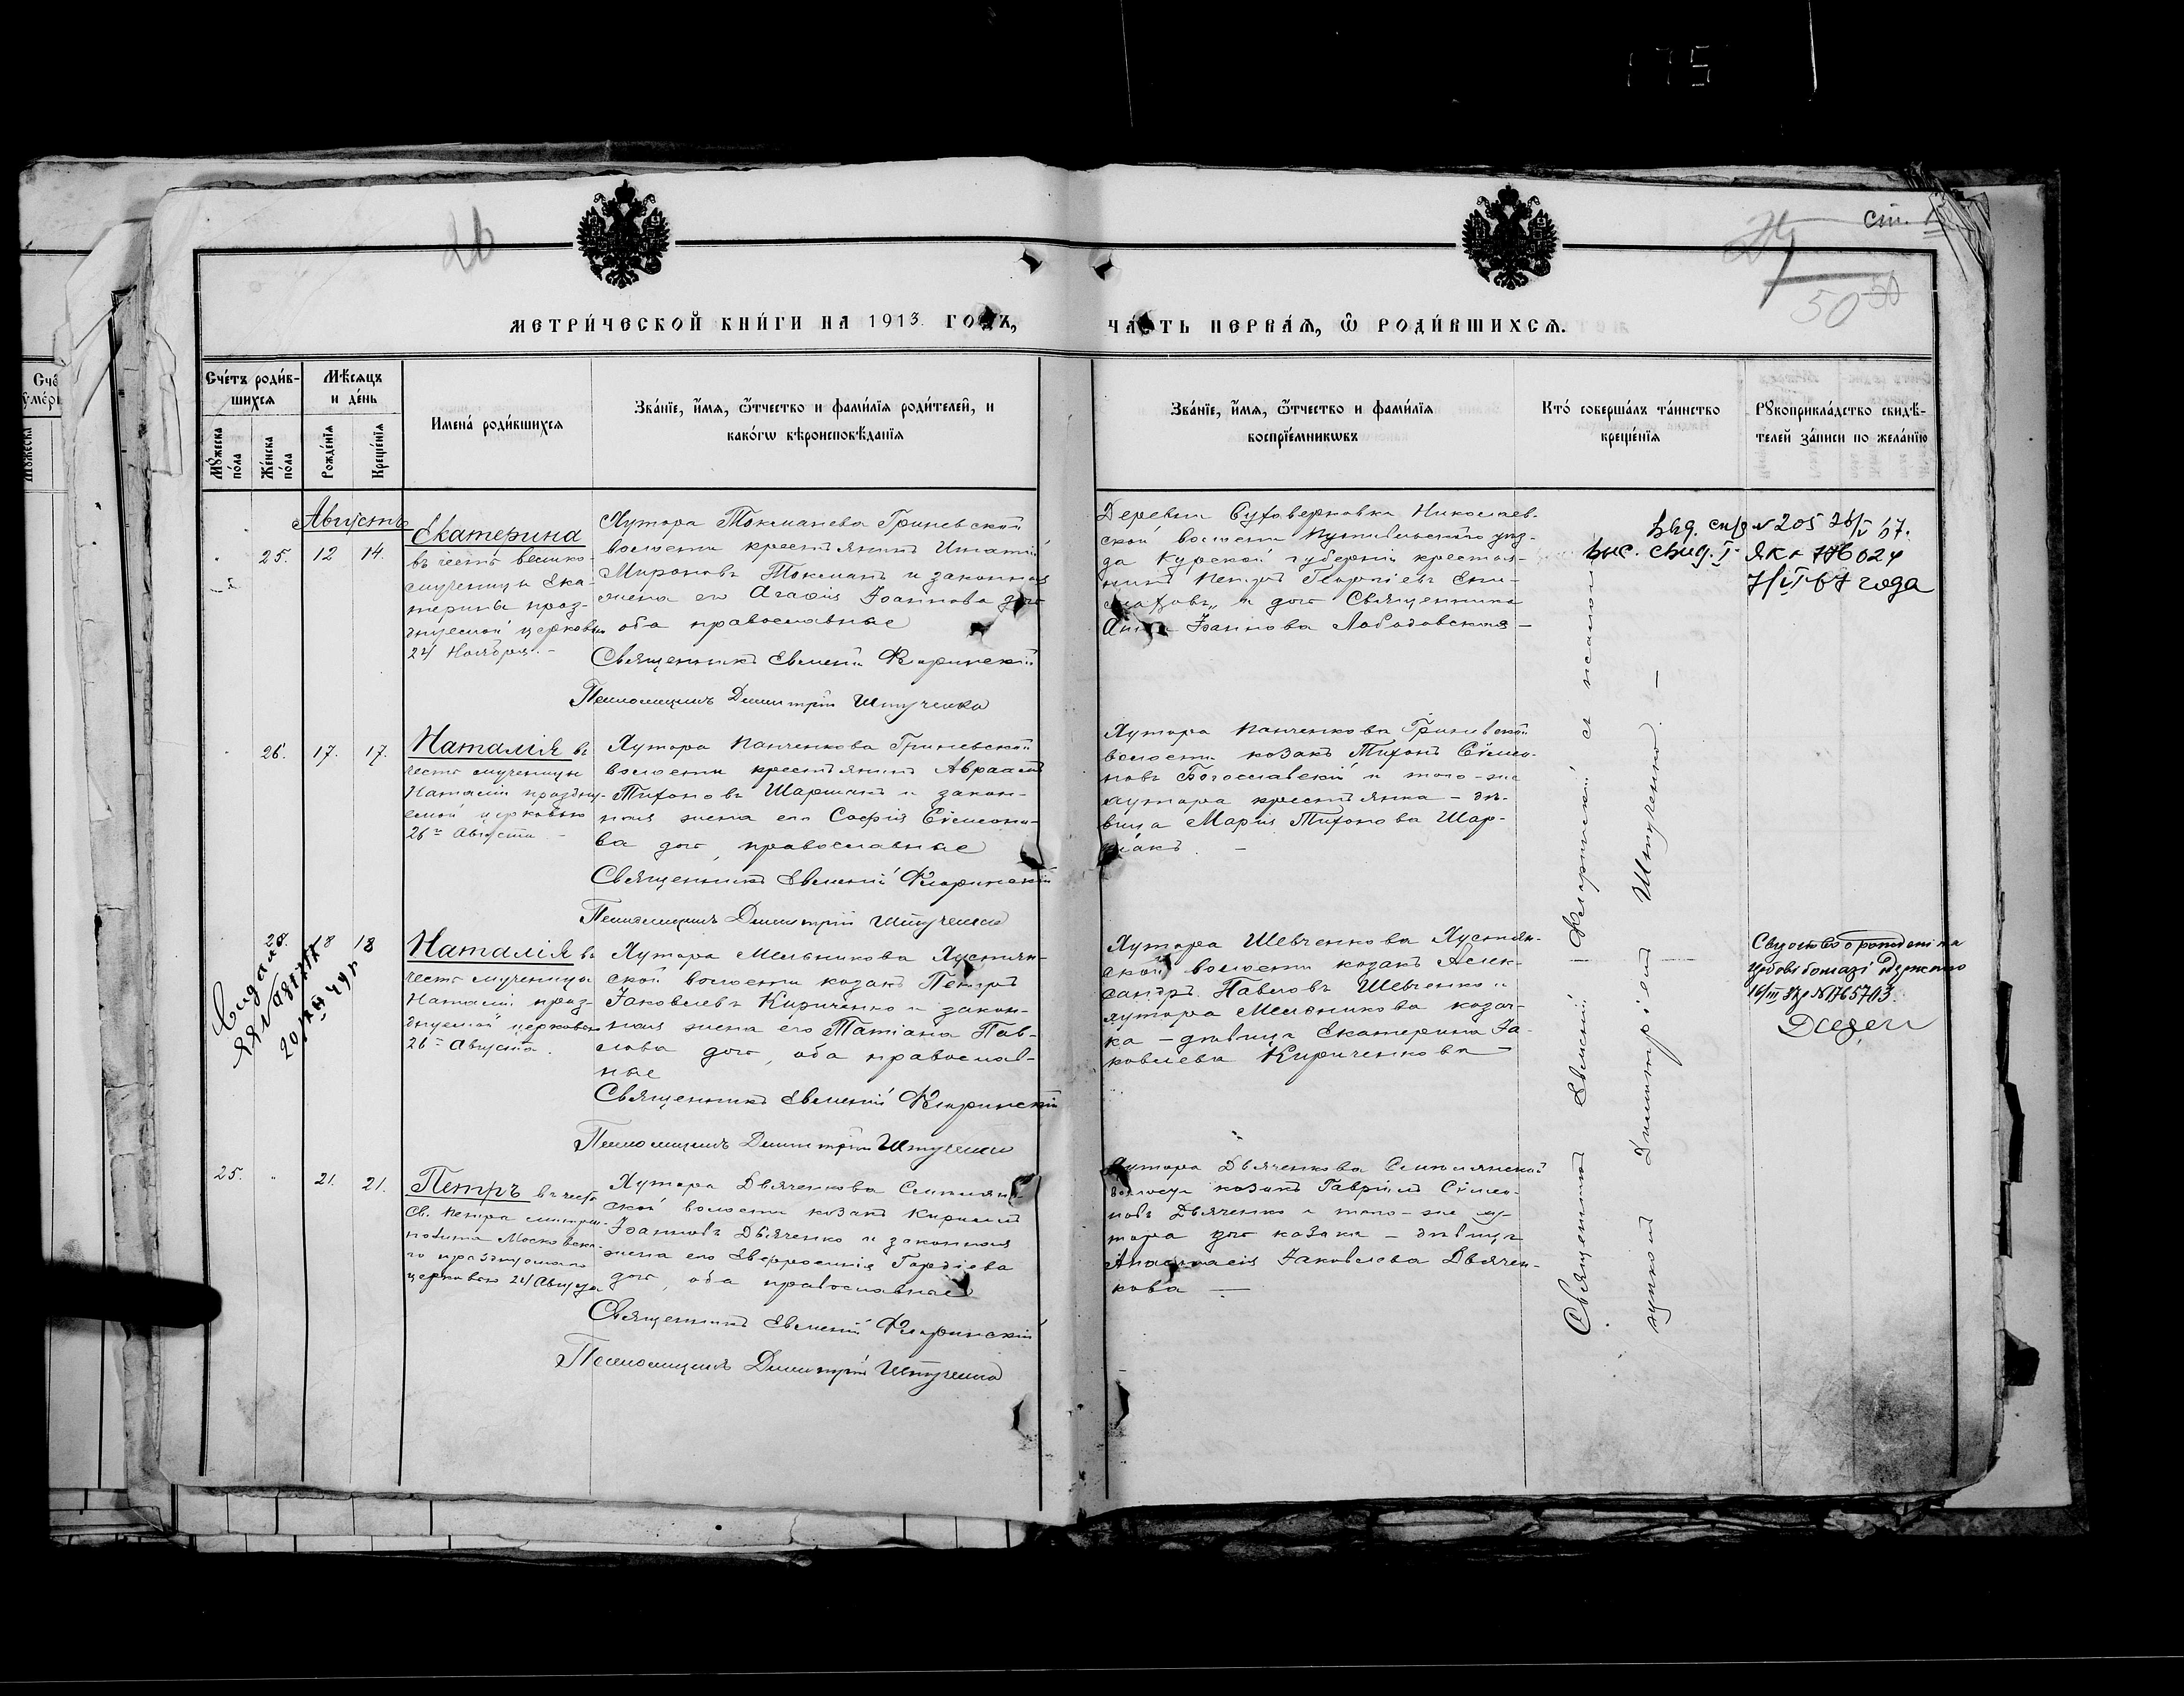 175
26
24
ст.
50 50
МЕТРИ́ЧЕСКОЙ КНИ́ГИ НА 1913. ГОДЪ,
ЧА́СТЬ ПЕРВА́Я, Ѡ РОДИ́ВШИХСЯ.
Сче́тъ роди́в-
шихся
Мꙋ́жеска
по́ла
Же́нска
по́ла
Мѣ́сяцъ
и де́нь
Рожде́нїя
Креще́нїя
Имена́ роди́вшихся
Зва́нїе, и́мя, ѻ҆́тчество и фами́лїя роди́телей, и
како́гѡ вѣроисповѣ́данїя
Зва́нїе, и́мя, ѻ҆́тчество и фами́лїя
воспрїе́мникѡвъ
Кто́ соверша́лъ та́инство
креще́нїя
Рꙋкоприкла́дство свидѣ́-
телей за́писи по жела́нїю
Августъ
25. 12 14.
Екатерина
въ честь велико-
мученицы Ека-
терины праз-
днуемой церковью
24 Ноября. -
Хутора Токманева Гриневской
волости крестьянинъ Игнатій
Мироновъ Токманъ и законная
жена его Агафія Іоаннова дочь
оба православные
Священникъ Евменій Флоринскій
Псаломщикъ Димитрій Штученко
Деревни Суховерковка Николаев-
ской волости Путивльскаго уѣз-
да Курской губерніи крестья-
нинъ Петръ Георгіевъ
и дочь Священника
Анна Іоаннова Лободовская -
выд. спр N 205 26/V 67.
выс. свид. I- ЯК 776024
7/VI-67 года
26. 17. 17.
Наталія въ
честь мученицы
Наталіи праздну-
емой церковью
26го Августа. -
Хутора Панченкова Гриневской
волости крестьянинъ Авраамъ
Тихоновъ Шаршакъ и закон-
ная жена его Софія Сѵмеоно-
ва дочь, православные
Священникъ Евменій Флоринскій
Псаломщикъ Димитрій Штученко
Хутора Панченкова Гриневской
волости козакъ Тихонъ Сѵмео-
новъ Богославскій и того-же
хутора крестьянка - дѣ-
вица Марія Тихонова Шар-
шакъ. -
28. 18 18
Выдано
20/XII 49 г
Наталія въ
честь мученицы
Наталіи праз-
днуемой церковью
26го Августа.
Хутора Мельникова Хустян-
ской волости козакъ Петръ
Іаковлевъ Кириченко и закон-
ная жена его Татіана Пав-
лова дочь, оба православ-
ные
Священникъ Евменій Флоринскій
Псаломщикъ Димитрій Штученко
Хутора Шевченкова Хустян-
ской волости козакъ Алек-
сандръ Павловъ Шевченко и
хутора Мельникова козач-
ка - дѣвица Екатерина Іа-
ковлева Кириченкова -
16/III 37р N1765703
25. " 21. 21.
Петръ въ честь
Св. Петра митро-
полита Московска-
го празднуемаго
церковью 24 Августа
Хутора Дьяченкова Семимян-
ской волости козакъ Кириллъ
Іоанновъ Дьяченко и законная
жена его Евфросинія Гордіева
дочь, оба православные
Священникъ Евменій Флоринскій
Псаломщикъ Димитрій Штученко
Хутора Дьяченкова
волости козакъ Гавріилъ Сѵмео-
новъ Дьяченко и того-же ху-
тора дочь козака - дѣвица
Анастасія Іаковлева Дьячен-
кова -
Священникъ Евменій Флоринскій съ псалом-
щикомъ Димитріемъ Штученко. -